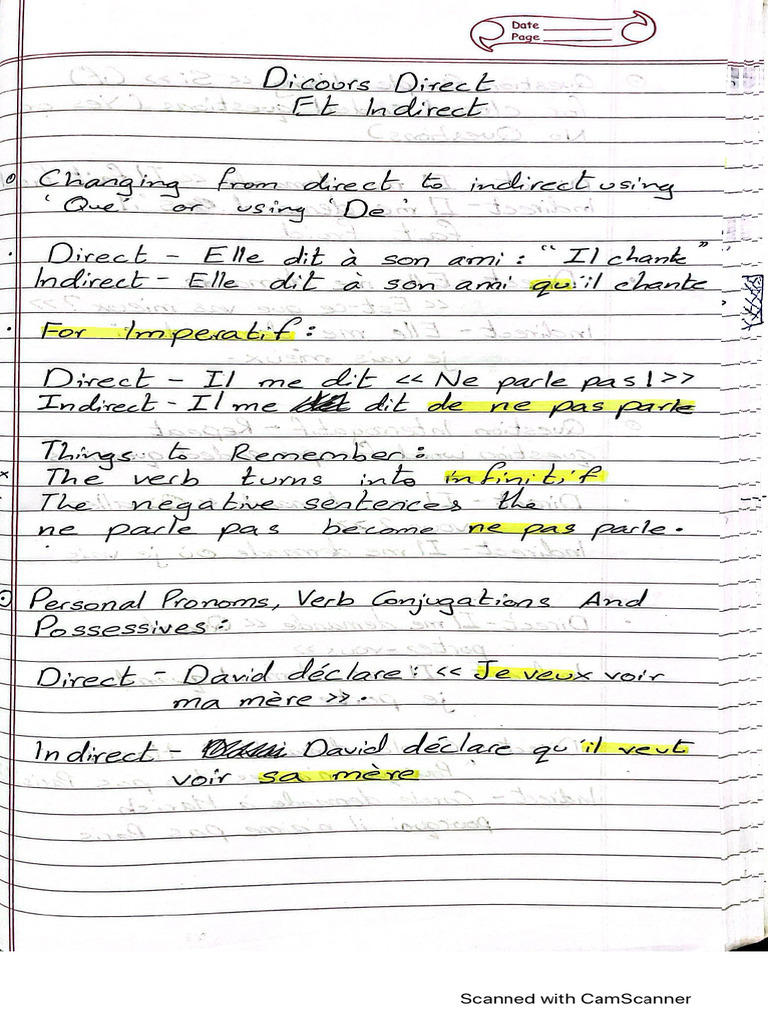 Date
Page
Dicours Direct
Et Indirect
Changing from direct to indirect using
'Que' or using 'De'
Direct - Elle dit à son ami : "Il chante"
Indirect - Elle dit à son ami qu'il chante
For Imperatif :
Direct - Il me dit << Ne parle pas! >>
Indirect - Il me dit de ne pas parle
Things to Remember :
The verb turns into infinitif
The negative sentences the
ne parle pas become ne pas parle.
Personal Pronoms, Verb Conjugations And
Possessives :
Direct - David déclare : << Je veux voir
ma mère >>.
Indirect - David déclare qu'il veut
voir sa mère
Scanned with CamScanner